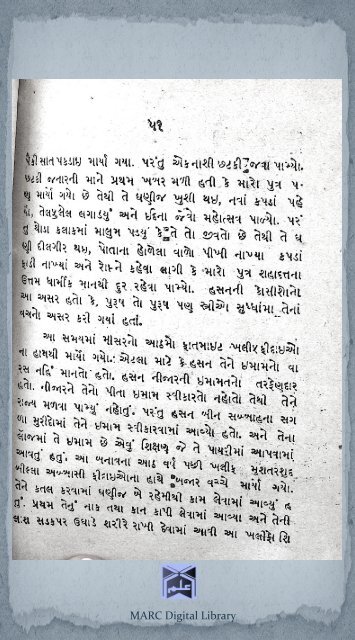 ૫૧
પૈકી સાત પકડાઇ માર્યા ગયા. પરંતુ એક નાશી છટકી જવા પામ્યો.
છટકી જનારની માને પ્રથમ ખબર મળી હતી કે મારો પુત્ર પ-
ણ માર્યો ગયો છે તેથી તે ઘણીજ ખુશી થઇ, નવાં કપડાં પહે
ર્યાં, તેલફુલેલ લગાડ્યું અને ઇદના જેવો મહોત્સવ પાળ્યો. પરં
તુ થોડા કલાકમાં માલુમ પડ્યું કે તે તો જીવતો છે તેથી તે ઘ
ણી દીલગીર થઇ, પોતાના હોળેલા વાળો પીખી નાખ્યા કપડાં
ફાડી નાખ્યાં અને રોઇને કહેવા લાગી કે મારો પુત્ર શહાદતના
ઉત્તમ ધાર્મીક માનથી દુર રહેવા પામ્યો. હસનની ફાસીશોનો
આ અસર હતો કે, પુરૂષ તો પુરૂષ પણ સ્ત્રીઓ સુધ્ધાંમા તેનાં
વચનો અસર કરી ગયાં હતાં.
આ સમયમાં મીસરનો આઠમો ફાતમાઇટ ખલીફ ફીદાઇઓ
ના હાથથી માર્યો ગયો. એટલા માટે કે હસન તેને ઇમામનો વા
રસ નહિં માનતો હતો. હસન નીજારની ઇમામતનો તરફેણદાર
હતો. નીજારને તેનો પીતા ઇમામ સ્વીકારતો નહોતો તેથી તેને
રાજ્ય મળવા પામ્યું નહોતું. પરંતુ હસન બીન સબ્બાહના સગ
ળા મુરીદોમાં તેને ઇમામ સ્વીકારવામાં આવ્યો હતો. અને તેના
લાજમાં તે ઇમામ છે એવું શિક્ષણ જે તે પાયરીમાં આપવામાં
આવતું હતું. આ બનાવના આઠ વર્ષ પછી ખલીફ મુશતરશદ
બીલ્લા અબ્બાસી ફીદાઇઓના હાથે બજાર વચ્ચે માર્યો ગયો.
તેને કતલ કરવામાં ઘણીજ બે રહેમીથી કામ લેવામાં આવ્યું હ
તું. પ્રથમ તેનું નાક તથા કાન કાપી લેવામાં આવ્યા અને તેની
લાશ સડકપર ઉઘાડે શરીરે રાખી દેવામાં આવી આ ખલીફો શિ
MARC Digital Library